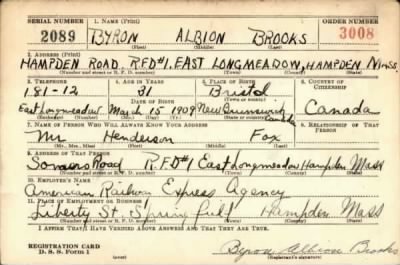 SERIAL NUMBER 1. NAME (Print) ORDER NUMBER
2089 BYRON ALBION BROOKS 3008
(First) (Middle) (Last)
2. ADDRESS (Print)
HAMPDEN ROAD, RFD#1, EAST LONGMEADOW, HAMPDEN MASS.
(Number and street or R. F. D. number) (Town) (County) (State)
3. TELEPHONE 4. AGE IN YEARS 5. PLACE OF BIRTH 6. COUNTRY OF CITIZENSHIP
181-12 31 Bristol
DATE OF BIRTH
East Longmeadow March 15 1909 New Brunswick Canada Canada
(Mo.) (Day) (Yr.)
7. NAME OF PERSON WHO WILL ALWAYS KNOW YOUR ADDRESS 8. RELATIONSHIP OF THAT PERSON
Mr. Henderson Fox
(Mr., Mrs., Miss) (First) (Middle) (Last)
9. ADDRESS OF THAT PERSON
Somers Road R.F.D#1 East Longmeadow Hampden Mass
(Number and street or R. F. D. number) (Town) (County) (State)
10. EMPLOYER'S NAME
American Railway Express Agency
11. PLACE OF EMPLOYMENT OR BUSINESS
Liberty St Springfield Hampden Mass
(Number and street or R. F. D. number) (Town) (County) (State)
I AFFIRM THAT I HAVE VERIFIED ABOVE ANSWERS AND THAT THEY ARE TRUE.
REGISTRATION CARD
D. S. S. Form 1
Byron Albion Brooks
(Registrant's signature)